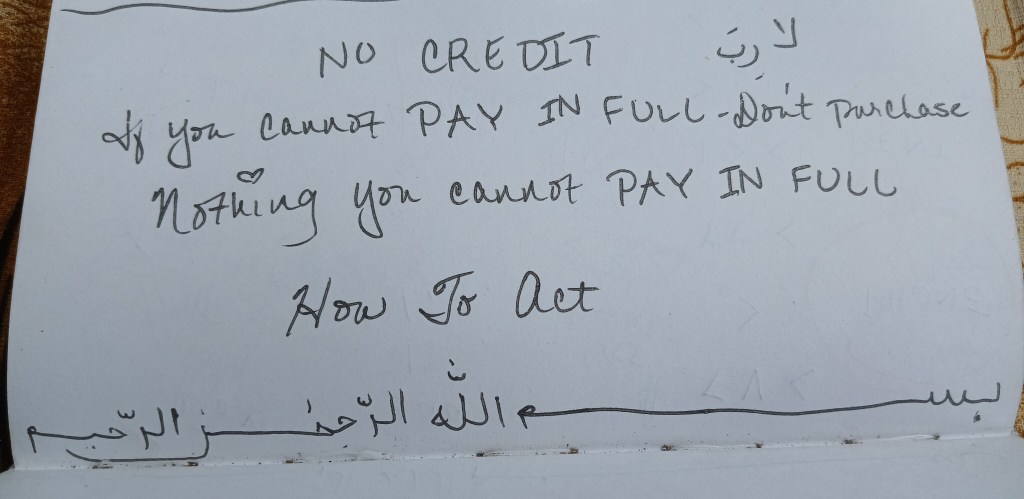 NO CREDIT لا رِبَ
If you cannot PAY IN FULL - Don't Purchase
Nothing you cannot PAY IN FULL
How To Act
بســـــم اللّٰه الرّحمٰـــن الرّحيـم